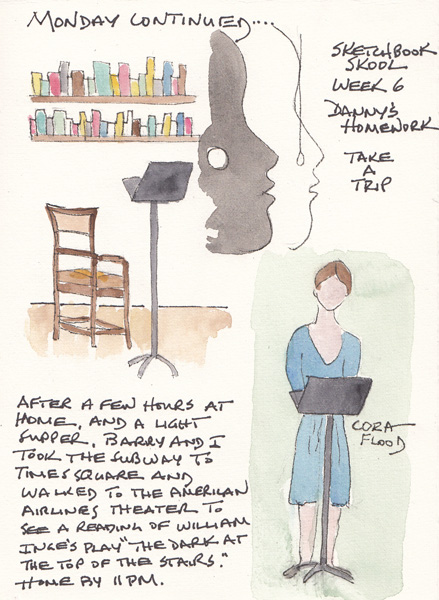 MONDAY CONTINUED....
SKETCHBOOK
SKOOL
WEEK 6
DANNY'S
HOMEWORK
TAKE
A
TRIP
CORA
FLOOD
AFTER A FEW HOURS AT
HOME, AND A LIGHT
SUPPER, BARRY AND I
TOOK THE SUBWAY TO
TIMES SQUARE AND
WALKED TO THE AMERICAN
AIRLINES THEATER TO
SEE A READING OF WILLIAM
INGE'S PLAY "THE DARK AT
THE TOP OF THE STAIRS."
HOME BY 11 PM.